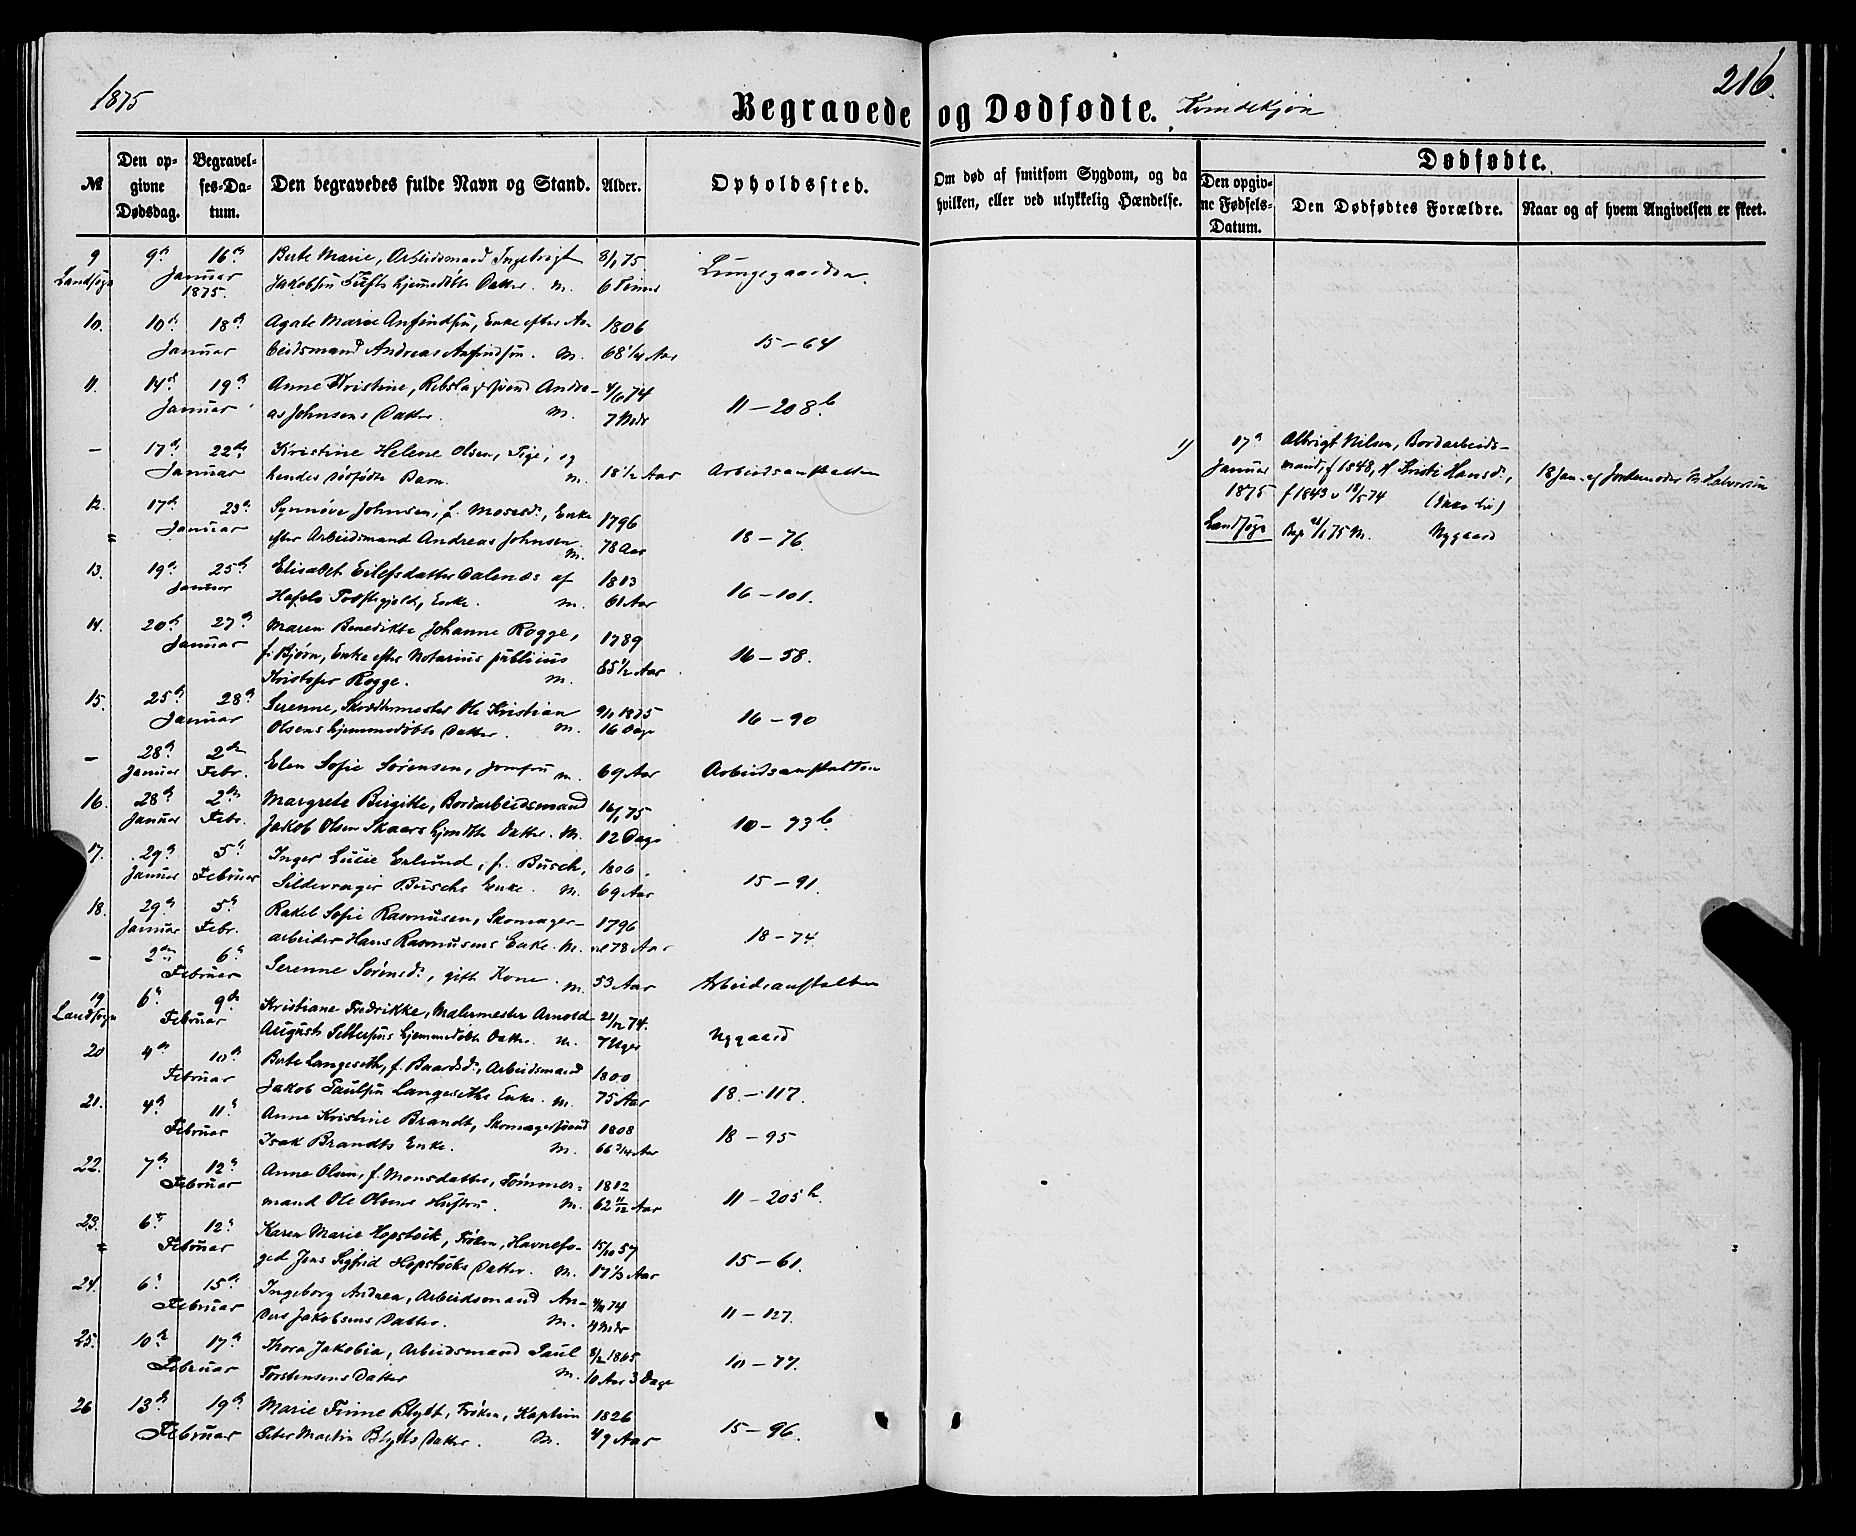 1875
Begravede og Dødfødte. Kvindekjøn
216.
№
Den opgivne Dødsdag.
Begravelses-Datum.
Den begravedes fulde Navn og Stand.
Alder.
Opholdssted.
Om død af smitsom Sygdom, og da hvilken, eller ved ulykkelig Hændelse.
Dødfødte.
Den opgivne Fødsels-Datum.
Den Dødfødtes Forældre.
Naar og af hvem Angivelsen er skeet.
9 9de 16de Berte Marie, Arbeidsmand Ingebrigt 8/1 75
Landsogn Januar 1875. Jakobsen hjemmedøbte Datter. M. 6 Timer Lungegaarden
10. 10de 18de Agate Marie Anfindsen, Enke efter Ar- 1806
Januar beidsmand Andreas Anfindsen. M. 68 1/4 Aar 15-64
11. 14de 19de Anne Kristine, Rebslagersvend Andre- 4/6 74
Januar as Johnsens Datter. M. 7 Mdr 11-208b
- 17de 22de Kristine Helene Olsen, Pige, og
Januar hendes dødfødte Barn. M. 18 1/2 Aar Arbeidsanstalten
12. 17de 23de Synnøve Johnsen, f. Mosesd., Enke 1796
Januar efter Arbeidsmand Andreas Johnsen M. 78 Aar 18-76
13. 19de 25de Elisabet Eilefsdatter Dalenæs af 1813
Januar Enke. M. 61 Aar 16-101.
14. 20de 27de Maren Benedikte Johanne Rogge, 1789
Januar f. Bjørn, Enke efter Notarius publicus 85 1/2 Aar 16-58.
Kristofer Rogge. M.
15. 25de 28de Serenne, Skræddermester Ole Kristian 9/1 1875
Januar Olsens hjemmedøbte Datter. M. 16 Dage 16-90
- 28de 2den
Januar Febr. Elen Sofie Sørensen, Jomfru M. 69 Aar Arbeidsanstalten
16. 28de 2den Margrete Birgitte, Bordarbeidsmand 16/1 75
Januar Febr. Jakob Olsen Skaars hjemdbte Datter. M. 12 Dage 10-73b
17. 29de 5te Inger Lucie Enlund, f. Busch, 1806.
Januar Februar Sildevrager Buschs Enke. M. 69 Aar 15-91.
18. 29de 5te Rakel Sofie Rasmusen, Skomager- 1796
Januar Febr. arbeider Hans Rasmusens Enke. M. 78 Aar 18-74
- 2den 6te
Februar Serenne Sørensd., gift Kone. M. 53 Aar Arbeidsanstalten
19 6te 9de Kristiane Fredrikke, Malermester Arnold 21/12 74.
Landsogn Februar August hjemmedøbte Datter. M. 7 Uger Nygaard
20 4de 10de Berte Langeseth, f. Baardsd., Arbeidsmand 1800
Februar Jakob Paulsen Langeseths Enke. M. 75 Aar 18-117.
21. 4de 11te Anne Kristine Brandt, Skomagersvend 1808
Februar Isak Brandts Enke. M. 66 3/4 Aar 18-95
22. 7de 12te Anne Olsen, f. Monsdatter, Tømmer- 1812
Februar mand Ole Olsens Hustru. M. 62 11/12 Aar 11-205b.
23. 6te 12te Karen Marie Hopstock, Frøken, Havnefo- 15/10 57
Februar ged Jens Sigfrid Hopstocks Datter. M. 17 1/3 Aar 15-61.
24. 6te 15de Ingeborg Andrea, Arbeidsmand An-
Februar ders Jakobsens Datter. M. 4 Mdr 11-127.
25. 10de 17de Thora Jakobia, Arbeidsmand Paul 8/2 1865
Februar Torstensens Datter M. 10 Aar 3 Dage 10-77.
26 13de 19de Marie Finne Blytt, Frøken, Kaptein 1826
Februar Peter Martin Blytts Datter. M. 49 Aar 15-96.
1) 17de Albrigt Nilsen, Bordarbeids-
Januar mand, f 1848, & Kristi Hansd., 18 Jan. af Jordemoder M. Halvorsen
1875 f 1843 v 18/5 74
Landsogn 75 M. Nygaard